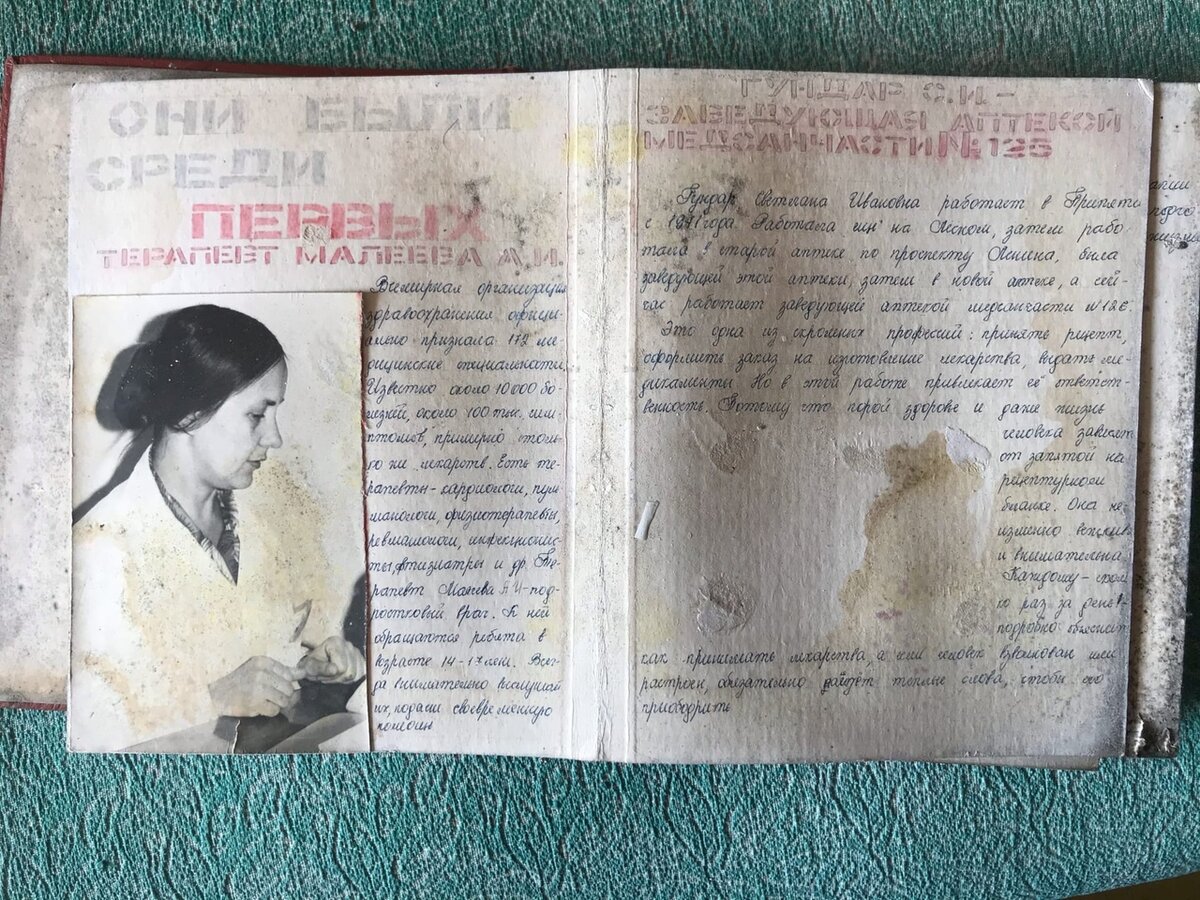 ОНИ БЫЛИ
СРЕДИ
ПЕРВЫХ
ТЕРАПЕВТ МАЛЕЕВА А.И.
Всемирная организация
здравоохранения офици-
ально признала 172 ме-
дицинские специальности.
Известно около 10 000 бо-
лезней, около 100 тыс. сим-
птомов, примерно столь-
ко же лекарств. Есть те-
рапевты-кардиологи, пуль-
манологи, физиотерапевты,
ревматологи, инфекционис-
ты, фтизиатры и др. Те-
рапевт Малеева А.И-под-
ростковый врач. К ней
обращаются ребята в
возрасте 14-17 лет. Всег-
да внимательно выслушает
их, подаст своевременную
помощь
ГУНДАР С.И.-
ЗАВЕДУЮЩАЯ АПТЕКОЙ
МЕДСАНЧАСТИ №126
Гундар Светлана Ивановна работает в Припяти
с 1971 года. Работала на Лесной, затем рабо
тала в старой аптеке по проспекту Ленина, была
заведующей этой аптеки, затем в новой аптеке, а сей-
час работает заведующей аптекой медсанчасти №126.
Это одна из скромных профессий: принять рецепт,
оформить заказ на изготовление лекарства, выдать ме-
дикаменты. Но в этой работе привлекает её ответст-
венность. Потому что порой здоровье и даже жизнь
человека зависят
от запятой на
рецептурном
бланке. Она не
изменно вежлива
и внимательна.
Каждому-столь
ко раз за день!-
подробно объяснит
как принимать лекарства, а если человек взволнован или
расстроен, обязательно найдёт теплые слова, чтобы его
приободрить